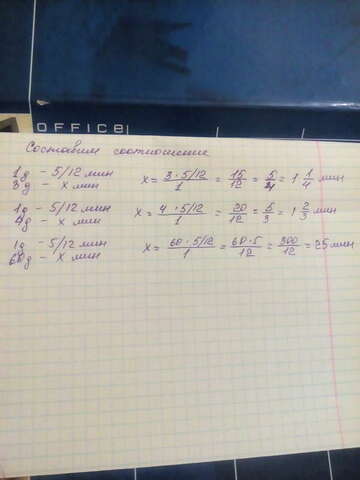 OFFICE
Составим соотношение
1д - 5/12 мин
3д - x мин
x = 3 · 5/12 / 1 = 15/12 = 5/4 = 1 1/4 мин
1д - 5/12 мин
4д - x мин
x = 4 · 5/12 / 1 = 20/12 = 5/3 = 1 2/3 мин
1д - 5/12 мин
60д - x мин
x = 60 · 5/12 / 1 = 60·5/12 = 300/12 = 25 мин